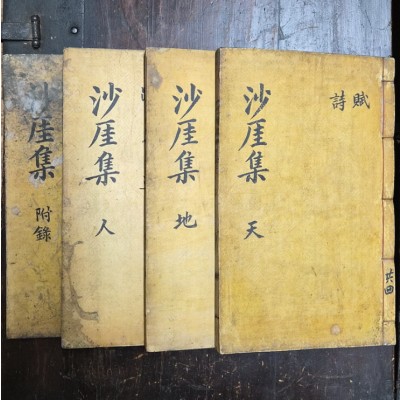 賦
詩
共四
沙厓集
天
沙厓集
地
沙厓集
人
沙厓集
附錄